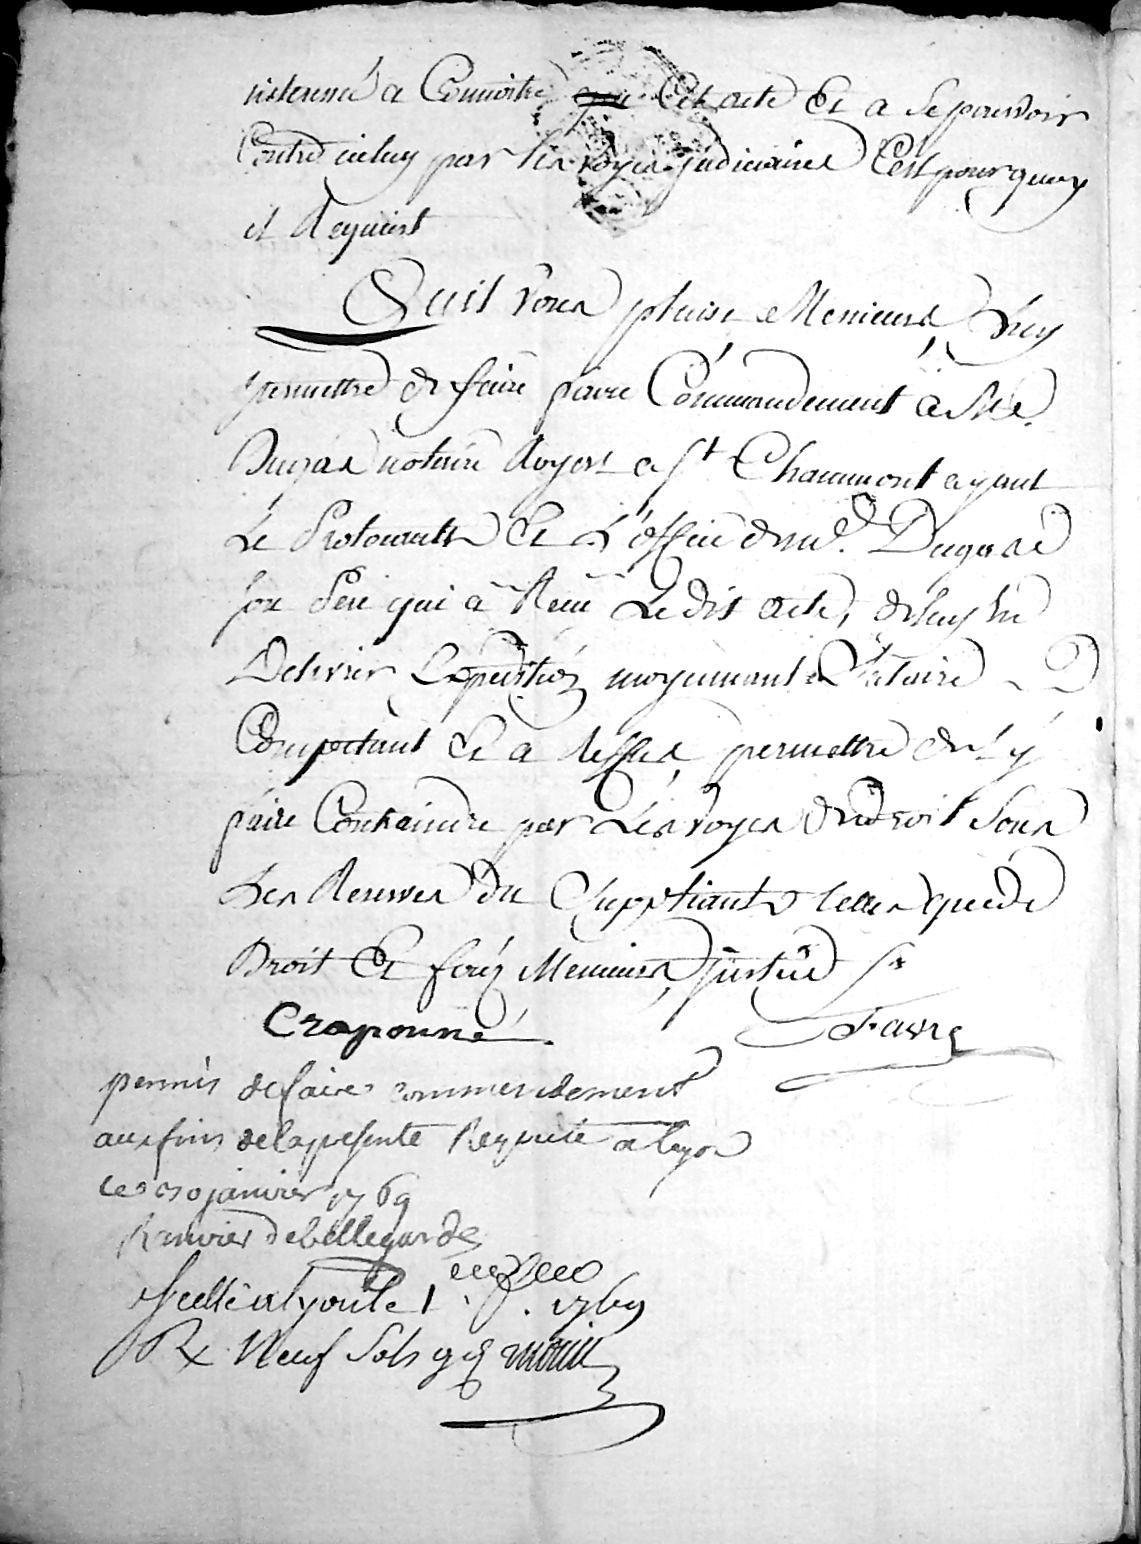 a Connoitre Cet acte Et a se pourvoir
Contre iceluy par les voyes judiciaires C'est pourquoy
il Requiert
Quil vous plaise Messieurs, Luy
permettre de faire faire Commandement a Me.
Dugas notaire Royal a St Chaumont ayant
Le Protocolle Et L'office de Me. Dugas
son Pere qui a Recu Ledit acte, de luy en
Delivrer Expedition moyennant Salaire
Competant Et a deffaut, permettre de L'y
faire Contraindre par Les voyes de droit sous
Les Reserves du Suppliant telles que de
Droit Et ferez Messieurs, justice
Craponne. Favre
permis de faire commendement
aux fins de la presente Requete a Lyon
ce 30 janvier 1769
Ranvier de bellegarde
Scellé a Lyon le 1 1769
Rx. Neuf Sols